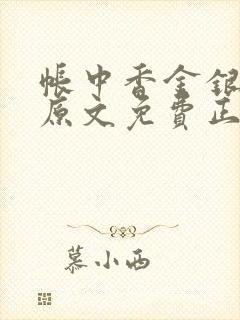 帐中香金银
原文免费正
慕小西